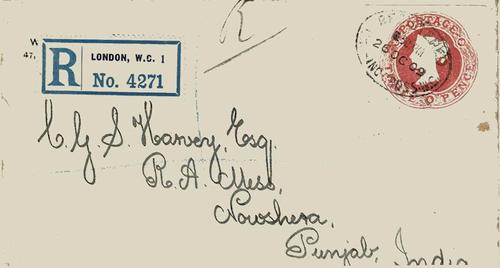 R
W
47,
R
LONDON, W.C. 1
No. 4271
POSTAGE
PENCE
26 OC 09
C. G. S. Harvey, Esq.
R. A. Mess,
Nowshera,
Punjab, India